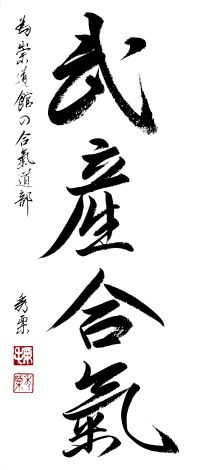 武産合氣
為崇道館の合氣道部